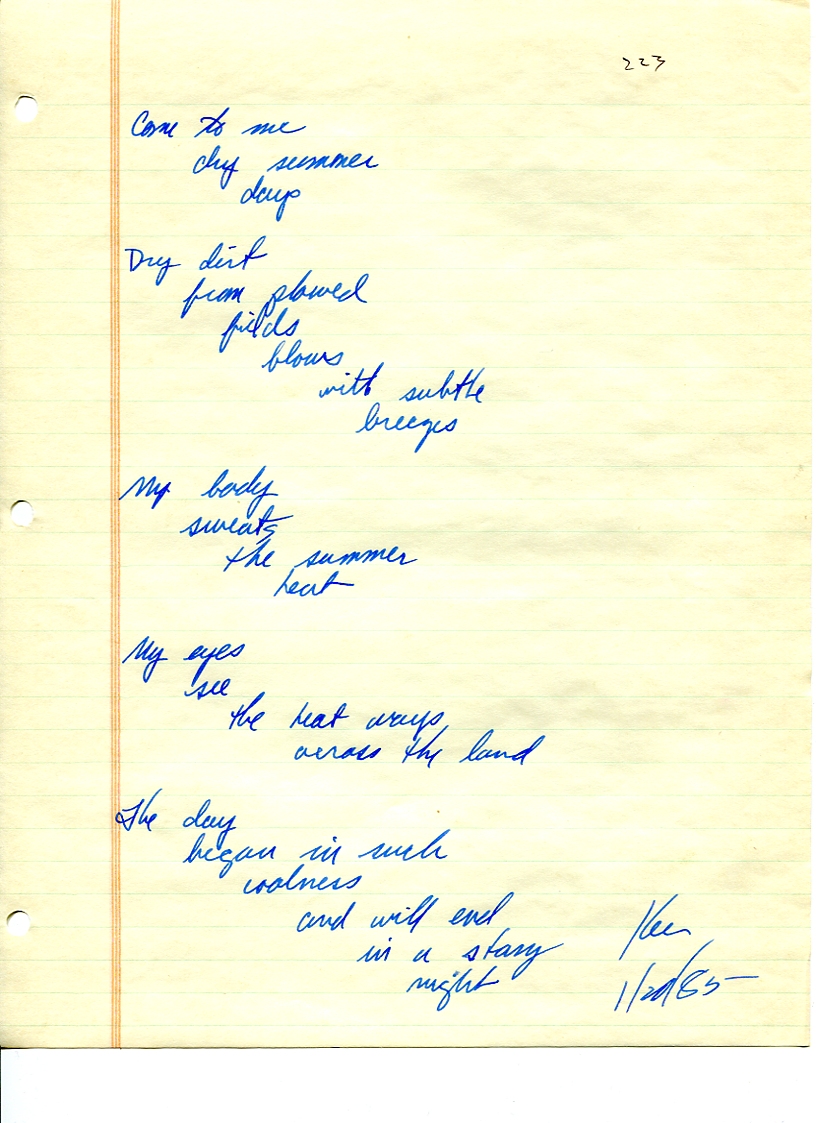 223
Come to me
dry summer
days
Dry dirt
from plowed
fields
blows
with subtle
breezes
My body
sweats
the summer
heat
My eyes
see
the heat ways
across the land
The day
began in such
coolness
and will end
in a stary
night
Ken
1/20/85